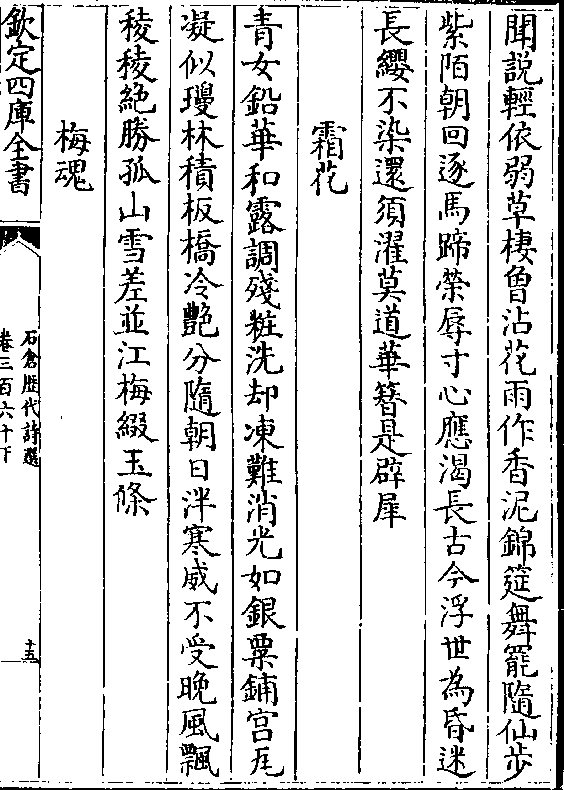 聞説輕依弱草棲曽沾花雨作香泥錦筵舞罷隨仙歩
紫陌朝回逐馬蹄榮辱寸心應渴長古今浮世為昏迷
長纓不染還須濯莫道華簪是辟犀
霜花
青女鉛華和露調殘粧洗却凍難消光如銀粟鋪宮瓦
凝似瓊林積板橋冷艶分隨朝日泮寒威不受晩風飄
稜稜絶勝孤山雪差並江梅綴玉條
梅魂
欽定四庫全書
石倉歴代詩選
卷三百六十下
十五